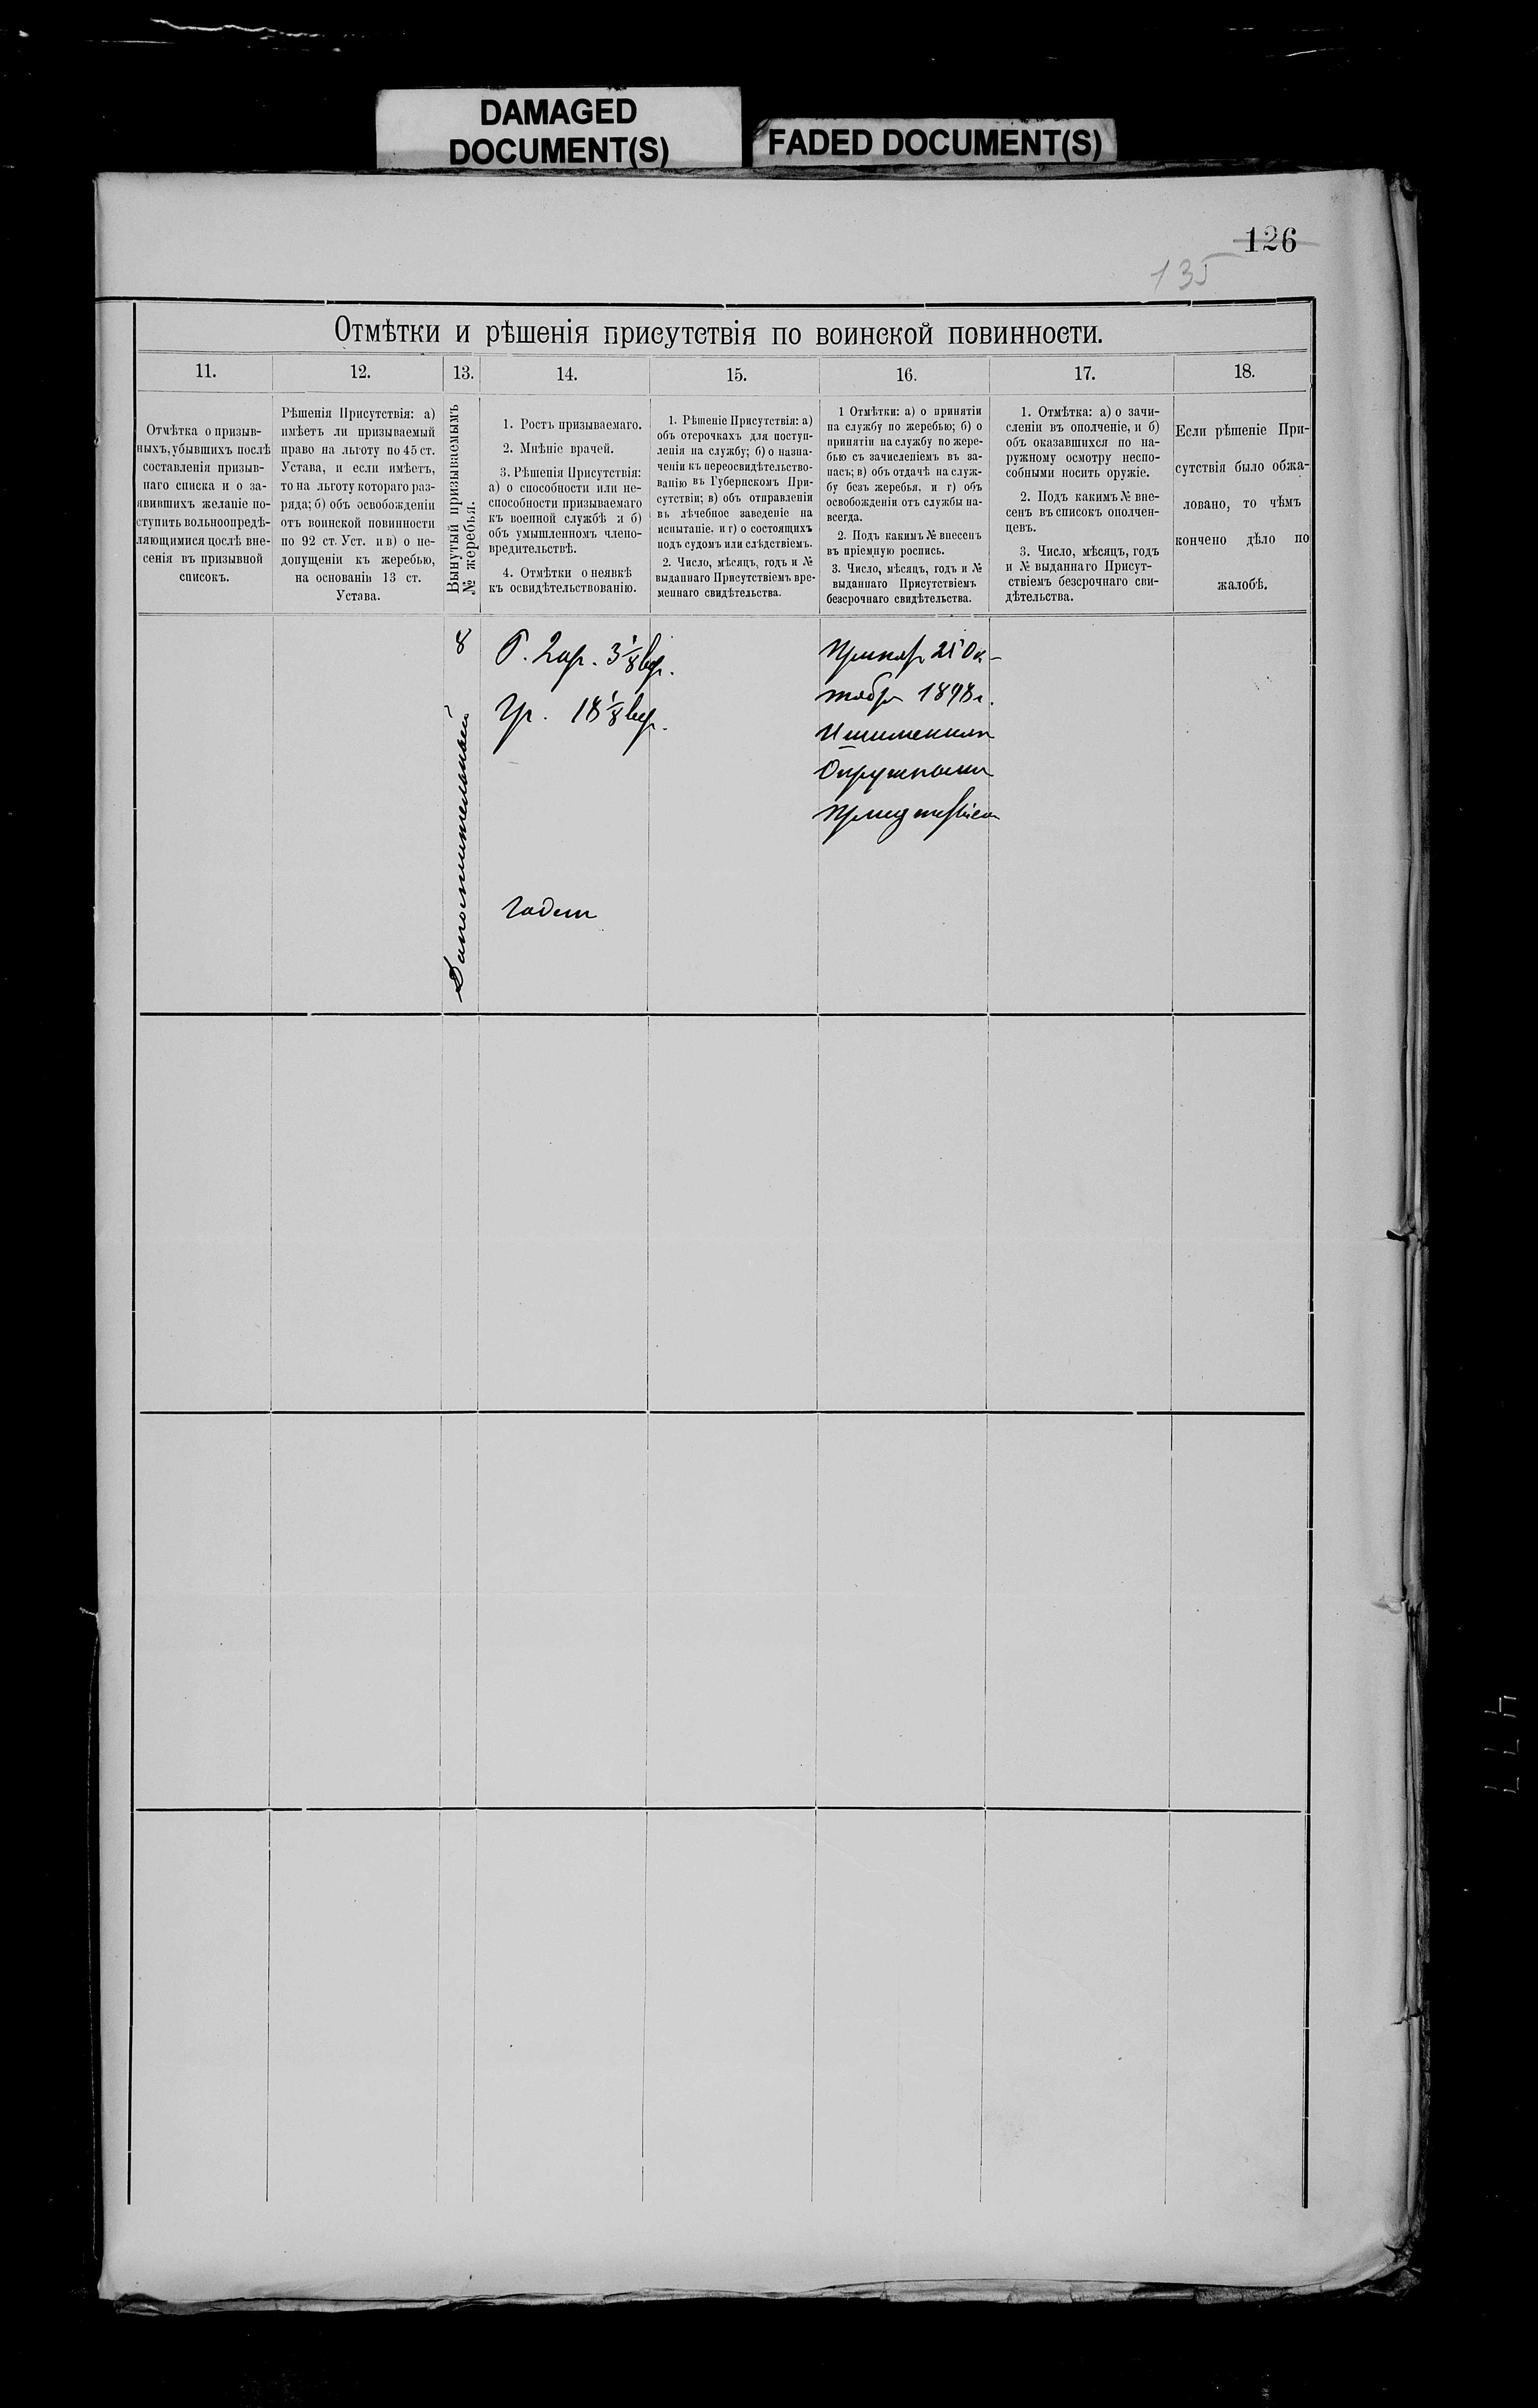 DAMAGED
DOCUMENT(S)
FADED DOCUMENT(S)
126
135
Отмѣтки и рѣшенія присутствія по воинской повинности.
11.
12.
13.
14.
15.
16.
17.
18.
Отмѣтка о призыв-
ныхъ, убывшихъ послѣ
составленія призыв-
наго списка и о за-
явившихъ желаніе по-
ступить вольноопредѣ-
ляющимися послѣ вне-
сенія въ призывной
списокъ.
Рѣшенія Присутствія: а)
имѣетъ ли призываемый
право на льготу по 45 ст.
Устава, и если имѣетъ,
то на льготу котораго раз-
ряда; б) объ освобожденіи
отъ воинской повинности
по 92 ст. Уст. и в) о не-
допущеніи къ жеребью,
на основаніи 13 ст.
Устава.
Вынутый призываемымъ
№ жеребья.
1. Ростъ призываемаго.
2. Мнѣніе врачей.
3. Рѣшенія Присутствія:
а) о способности или не-
способности призываемаго
къ военной службѣ и б)
объ умышленномъ члено-
вредительствѣ.
4. Отмѣтки о неявкѣ
къ освидѣтельствованію.
1. Рѣшеніе Присутствія: а)
объ отсрочкахъ для поступ-
ленія на службу; б) о назна-
ченіи къ переосвидѣтельство-
ванію въ Губернскомъ При-
сутствіи; в) объ отправленіи
въ лѣчебное заведеніе на
испытаніе, и г) о состоящихъ
подъ судомъ или слѣдствіемъ.
2. Число, мѣсяцъ, годъ и №
выданнаго Присутствіемъ вре-
меннаго свидѣтельства.
1 Отмѣтки: а) о принятіи
на службу по жеребью; б) о
принятіи на службу по жере-
бью съ зачисленіемъ въ за-
пасъ; в) объ отдачѣ на служ-
бу безъ жеребья, и г) объ
освобожденіи отъ службы на-
всегда.
2. Подъ какимъ № внесенъ
въ пріемную роспись.
3. Число, мѣсяцъ, годъ и №
выданнаго Присутствіемъ
безсрочнаго свидѣтельства.
1. Отмѣтка: а) о зачи-
сленіи въ ополченіе, и б)
объ оказавшихся по на-
ружному осмотру неспо-
собными носить оружіе.
2. Подъ какимъ № вне-
сенъ въ списокъ ополчен-
цевъ.
3. Число, мѣсяцъ, годъ
и № выданнаго Присут-
ствіемъ безсрочнаго сви-
дѣтельства.
Если рѣшеніе При-
сутствія было обжа-
ловано, то чѣмъ
кончено дѣло по
жалобѣ.
8
Дополнительный
Р. 2 ар. 3 1/8 вер.
Гр. 18 1/8 вер.
Годенъ
Принятъ 21 Ок-
тября 1898 г.
Ишимскимъ
Окружнымъ
Присутствіемъ
477